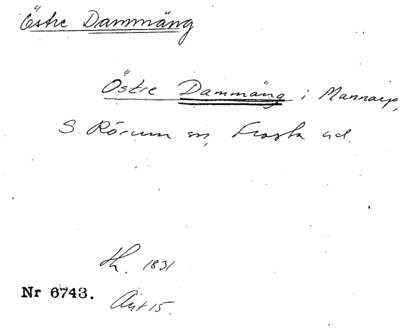 Östre Dammäng
Östre Dammäng i Mannarp,
S. Rörum sn, Frosta hd.
Sk. 1831
Nr 6743. Akt 15.